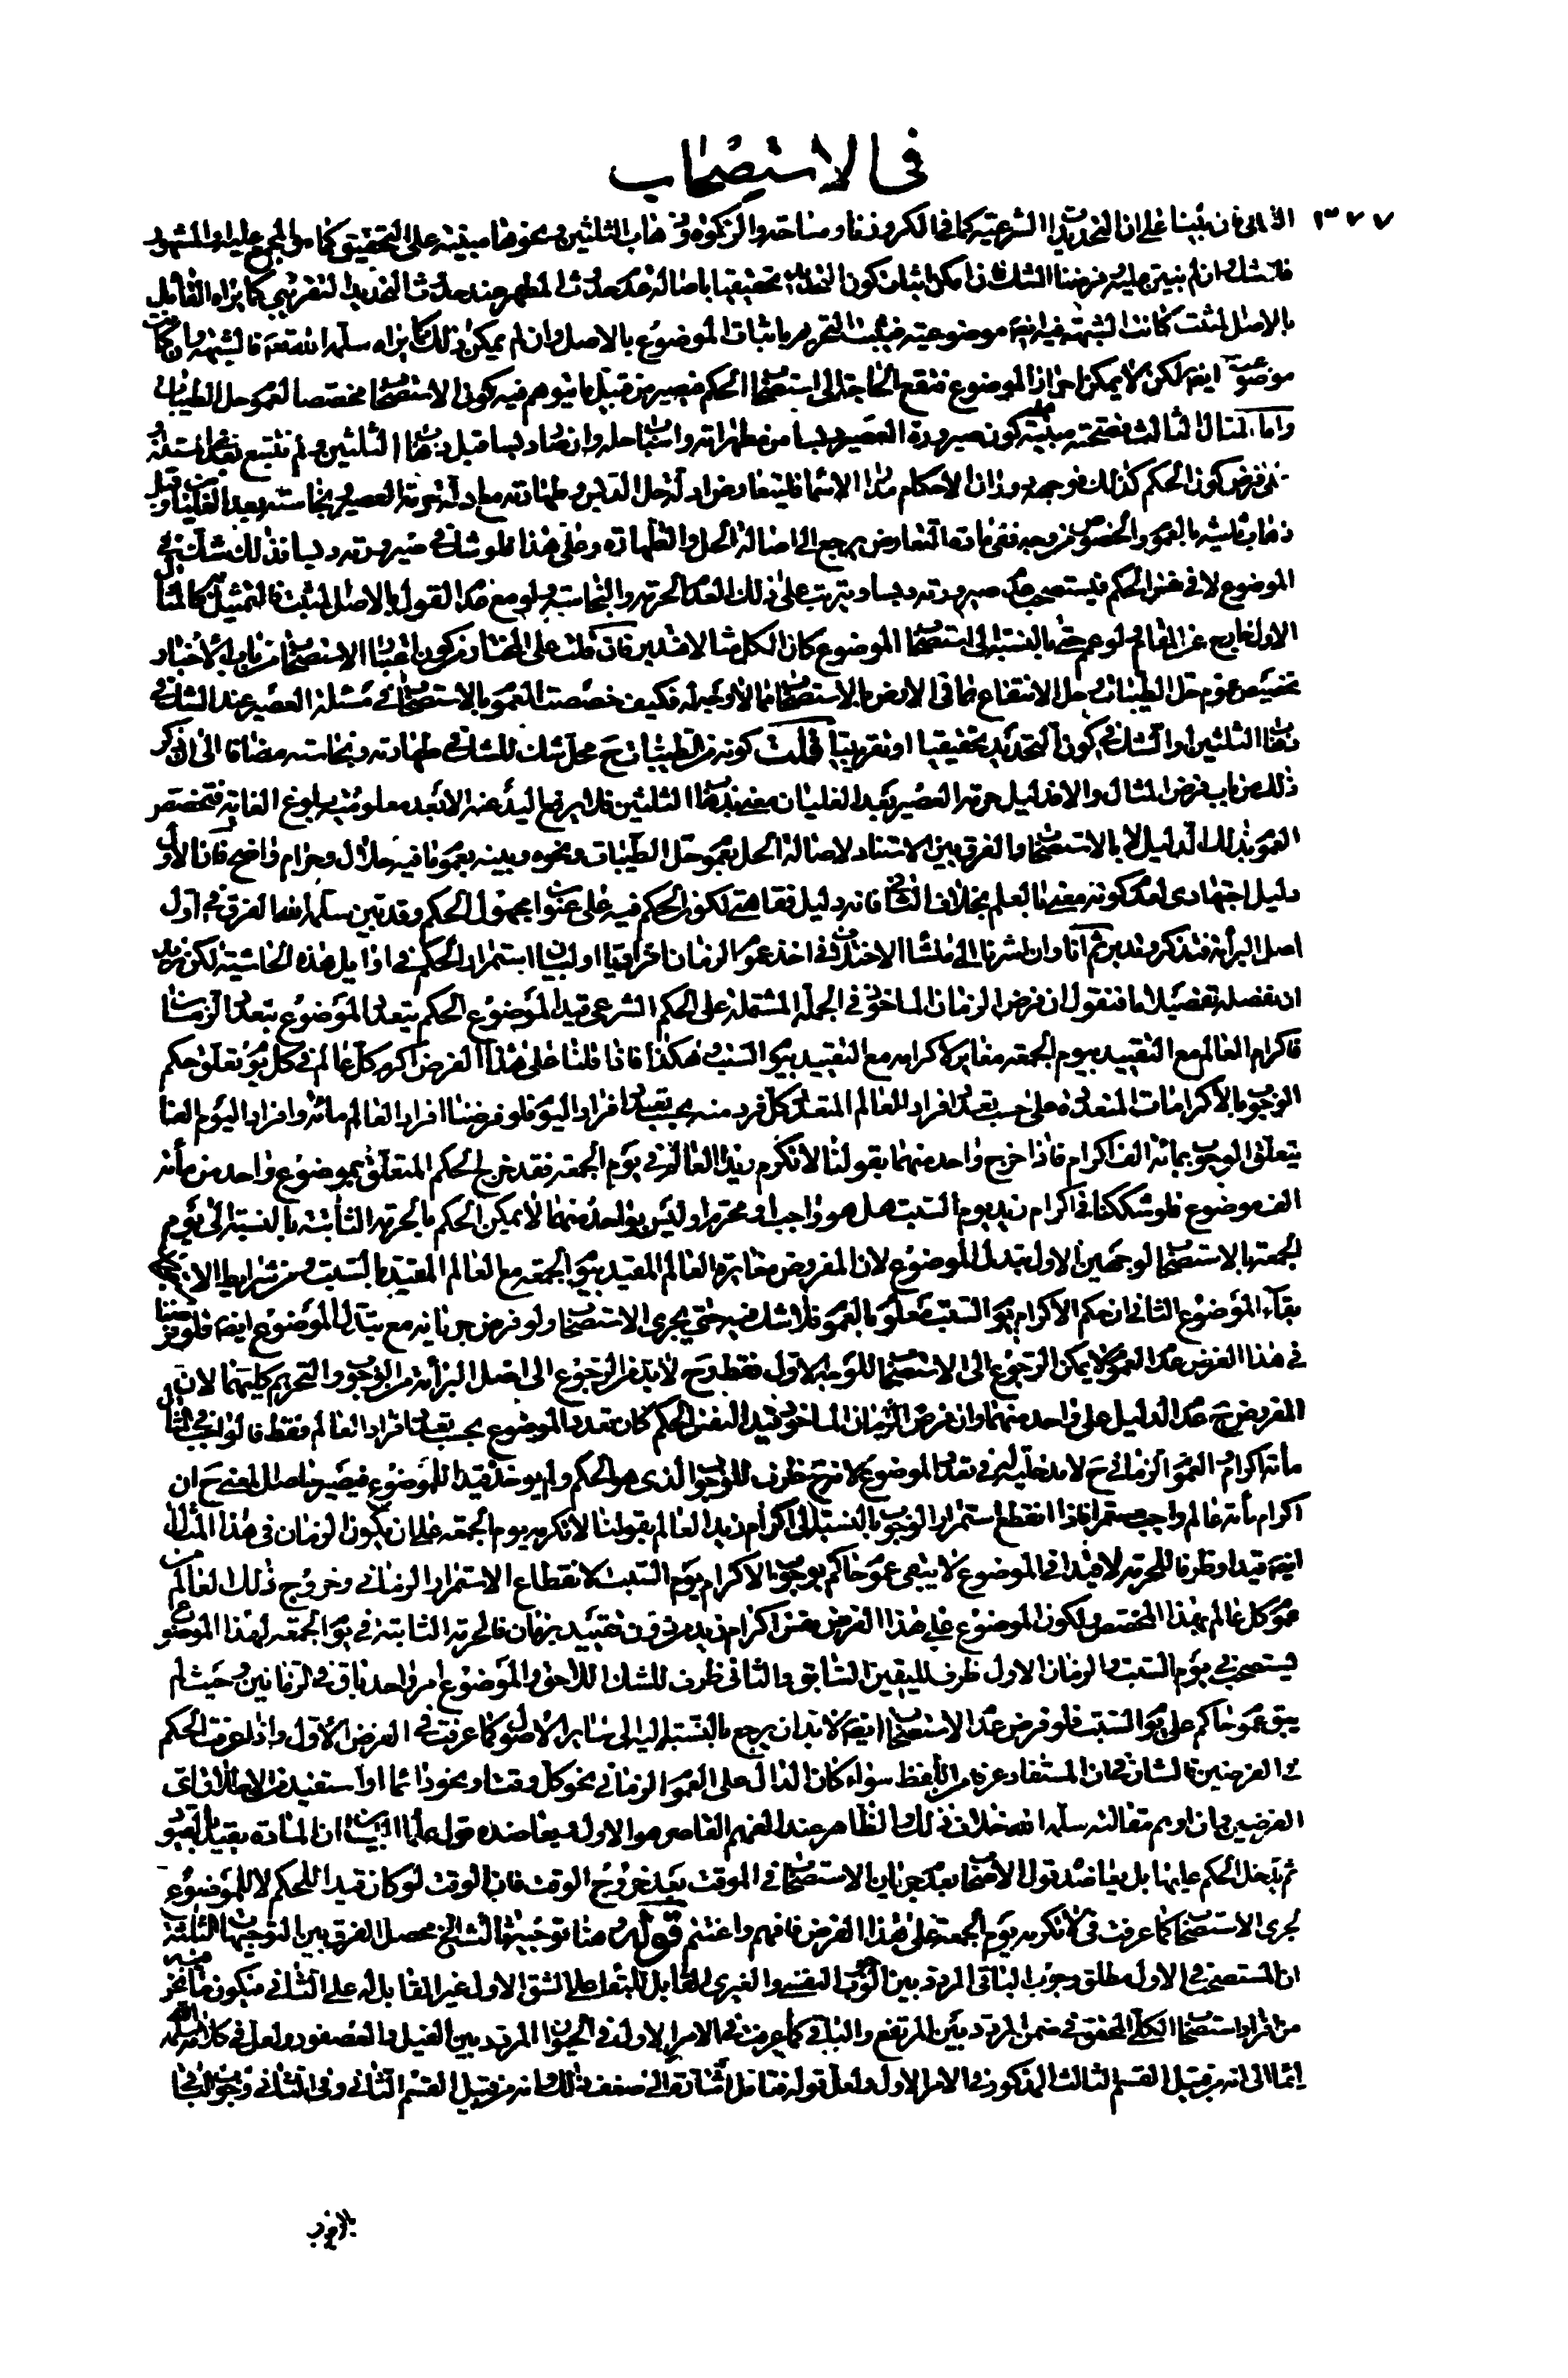 في الاستصحاب
٣٧٧
فان بنينا على ان التحديدات الشرعية كما في الكر وزنا ومساحة والزكوة وذهاب الثلثين ونحوها مبنية على التحقيق كما هو المجمع عليه والمشهور
فلا شك وان لم نبين عليه فرضنا الشك فاذا امكن اثبات كون التحديد تحقيقيا باصالة عدم حدوث المطهر عند حدوث التحديد التقريبي كما يراه القائل
بالاصل المثبت كانت الشبهة فيه ايضا موضوعية فيثبت التحريم باثبات الموضوع بالاصل وان لم يمكن ذلك كما يراه سلمه الله تعالى فالشبهة وان كانت
موضوعية ايضا لكن لا يمكن احراز الموضوع فتقع الحاجة الى استصحاب الحكم فيصير من قبيل ما يتوهم فيه كون الاستصحاب مخصصا لعموم حل الطيبات
واما المثال الثالث فصحته مبنية على كون صيرورة العصير دبسا من مطهراته واسباب حله وان صار دبسا قبل ذهاب الثلثين ولم نتتبع
فرض كون الحكم كذلك فوجهه دوران الاحكام مدار الاسماء فليتعارض ادلة حل الدبس وطهارته مع ادلة حرمة العصير ونجاسته بعد الغليان وقبل
ذهاب ثلثيه بالعموم والخصوص من وجه ففي مادة التعارض يرجع الى اصالة الحل والطهارة وعلى هذا فلو شك في صيرورته دبسا فذلك شك في
الموضوع لا في نفس الحكم فيستصحب عدم صيرورته دبسا ويترتب على ذلك العدم الحرمة والنجاسة ولو مع عدم القول بالاصل المثبت فالتمثيل به كالمثال
الاول خارج عن المقام لو عم حتى بالنسبة الى استصحاب الموضوع كان الكل مثالا فتدبر فان قلت على المختار من كون اعتبار الاستصحاب من باب الاخبار
تخصيص عموم حل الطيبات وحل الانتفاع بما في الارض بالاستصحاب مما لا وجه له فكيف خصصت العموم بالاستصحاب في مسئلة العصير عند الشك في
ذهاب الثلثين او الشك في كون التحديد تحقيقيا او تقريبيا قلت كونه من الطيبات ح محل شك للشك في طهارته ونجاسته مضافا الى ان ذكر
ذلك من باب فرض المثال والا فدليل حرمة العصير بعد الغليان مغيى بذهاب الثلثين فلا يرفع اليد عنه الا بعد معلومية بلوغ الغاية فتخصيص
العموم بذلك الدليل لا بالاستصحاب والفرق بين الاستناد لاصالة الحل بعموم حل الطيبات ونحوه وبينه بعموم ما فيه حلال وحرام واضح فان الاول
دليل اجتهادي لعدم كونه مغيى بالعلم بخلاف الثاني فانه دليل فقاهتي لكون الحكم فيه على عنوان مجهول الحكم وقد تبين سلمه الله الفرق في اول
اصل البرائة فتذكر وتدبر ثم انا وان اشرنا الى منشأ الاختلاف في اخذ عموم الزمان افراديا او لبيان استمرار الحكم في اوايل هذه الحاشية لكن نريد
ان نفصله تفصيلا ما فنقول ان فرض الزمان الماخوذ في الجملة المشتملة على الحكم الشرعي قيدا لموضوع الحكم يتعدد الموضوع بتعدد الزمان
فاكرام العالم مع التقييد بيوم الجمعة مغاير لاكرامه مع التقييد بيوم السبت وهكذا فاذا قلنا على هذا الفرض اكرم كل عالم في كل يوم تعلق حكم
الوجوب بالاكرامات المتعددة على حسب تعدد افراد العالم المتعدد كل فرد منه بحسب تعدد افراد اليوم فلو فرضنا افراد العالم مائة وافراد اليوم الفا
يتعلق الوجوب بمائة الف اكرام فاذا خرج واحد منهما بقولنا لا تكرم زيدا العالم في يوم الجمعة فقد خرج الحكم المتعلق بموضوع واحد من مأة
الف موضوع فلو شككنا في اكرام زيد يوم السبت هل هو واجب او محرم او ليس بواحد منهما لا يمكن الحكم بالحرمة الثابتة بالنسبة الى يوم
الجمعة بالاستصحاب لوجهين الاول تبدل الموضوع لان المفروض مغايرة العالم المقيد بيوم الجمعة مع العالم المقيد بالسبت ومن شرايط الاستصحاب
بقاء الموضوع الثاني ان حكم الاكرام يوم السبت معلوم بالعموم فلا شك فيه حتى يجري الاستصحاب ولو فرض جريانه مع تبدل الموضوع ايضا فلو فرضنا
في هذا الفرض عدم العموم لا يمكن الرجوع الى الاستصحاب للوجه الاول فقط وح لا بد من الرجوع الى اصل البرائة من الوجوب والتحريم كليهما لان
المفروض ح عدم الدليل على واحد منهما وان فرض الزمان الماخوذ قيدا لنفس الحكم كان تعدد الموضوع بحسب تعدد افراد العالم فقط فالواجب في المثال
مأة اكرام والعموم الزماني ح لا مدخلية له في تعدد الموضوع لانه ح ظرف للوجوب الذي هو الحكم ولم يوخذ قيدا للموضوع فيصير حاصل المعنى ح ان
اكرام مأة عالم واجب مستمرا فاذا انقطع استمرار الوجوب بالنسبة الى اكرام زيد العالم بقولنا لا تكرمه يوم الجمعة على ان يكون الزمان في هذا المثال
ايضا قيدا وظرفا للحرمة لا قيدا في الموضوع لا يبقى عموم حاكم بوجوب الاكرام يوم السبت لانقطاع الاستمرار الزماني وخروج ذلك العالم من
عموم كل عالم بهذا المخصص ولكون الموضوع على هذا الفرض نفس اكرام زيد من دون تقييد بزمان فالحرمة الثابتة في يوم الجمعة لهذا الموضوع
يستصحب في يوم السبت والزمان الاول ظرف لليقين السابق والثاني ظرف للشك اللاحق والموضوع امر واحد باق في الزمانين وحيث لم
يبق عموم حاكم على يوم السبت فلو فرض عدم الاستصحاب ايضا لا بد ان يرجع بالنسبة اليه الى ساير الاصول كما عرفت في الفرض الاول واذا عرفت الحكم
في الفرضين فالشان في ان المستفاد عرفا من اللفظ سواء كان الدال على العموم الزماني نحو كل وقت او نحو دائما او استفيد من الاطلاق اي
الفرضين وان اوهم مقالته سلمه الله خلاف ذلك والظاهر عند الفهم القاصر هو الاول ويعاضده قول علماء البيان ان المادة يقيد بالقيود
ثم يدخل الحكم عليها بل يعاضده قول الاصحاب بعدم جريان الاستصحاب في الموقت بعد خروج الوقت فان الوقت لو كان قيدا للحكم لا للموضوع
لجرى الاستصحاب كما عرفت في لا تكرمه يوم الجمعة على هذا الفرض فافهم واغتنم قوله وهنا توجيه ثالث الخ محصل الفرق بين التوجيهات الثلثة
ان المستصحب في الاول مطلق وجوب الباقي المردد بين الوجوب النفسي والغيري المقابل له على الشق الاول غير المقابل له على الثاني فيكون ما نحن فيه
من افراد استصحاب الكلي المحقق في ضمن المردد بين المرتفع والباقي كما عرفت في الامر الاول في الحيوان المردد بين الفيل والعصفور ولعل في كلامه سلمه الله
ايماء الى انه من قبيل القسم الثالث المذكور في الامر الاول ولعل قوله فتامل اشارة الى ضعف ذلك وانه من قبيل القسم الثاني وفي الثاني وجوب الباقي